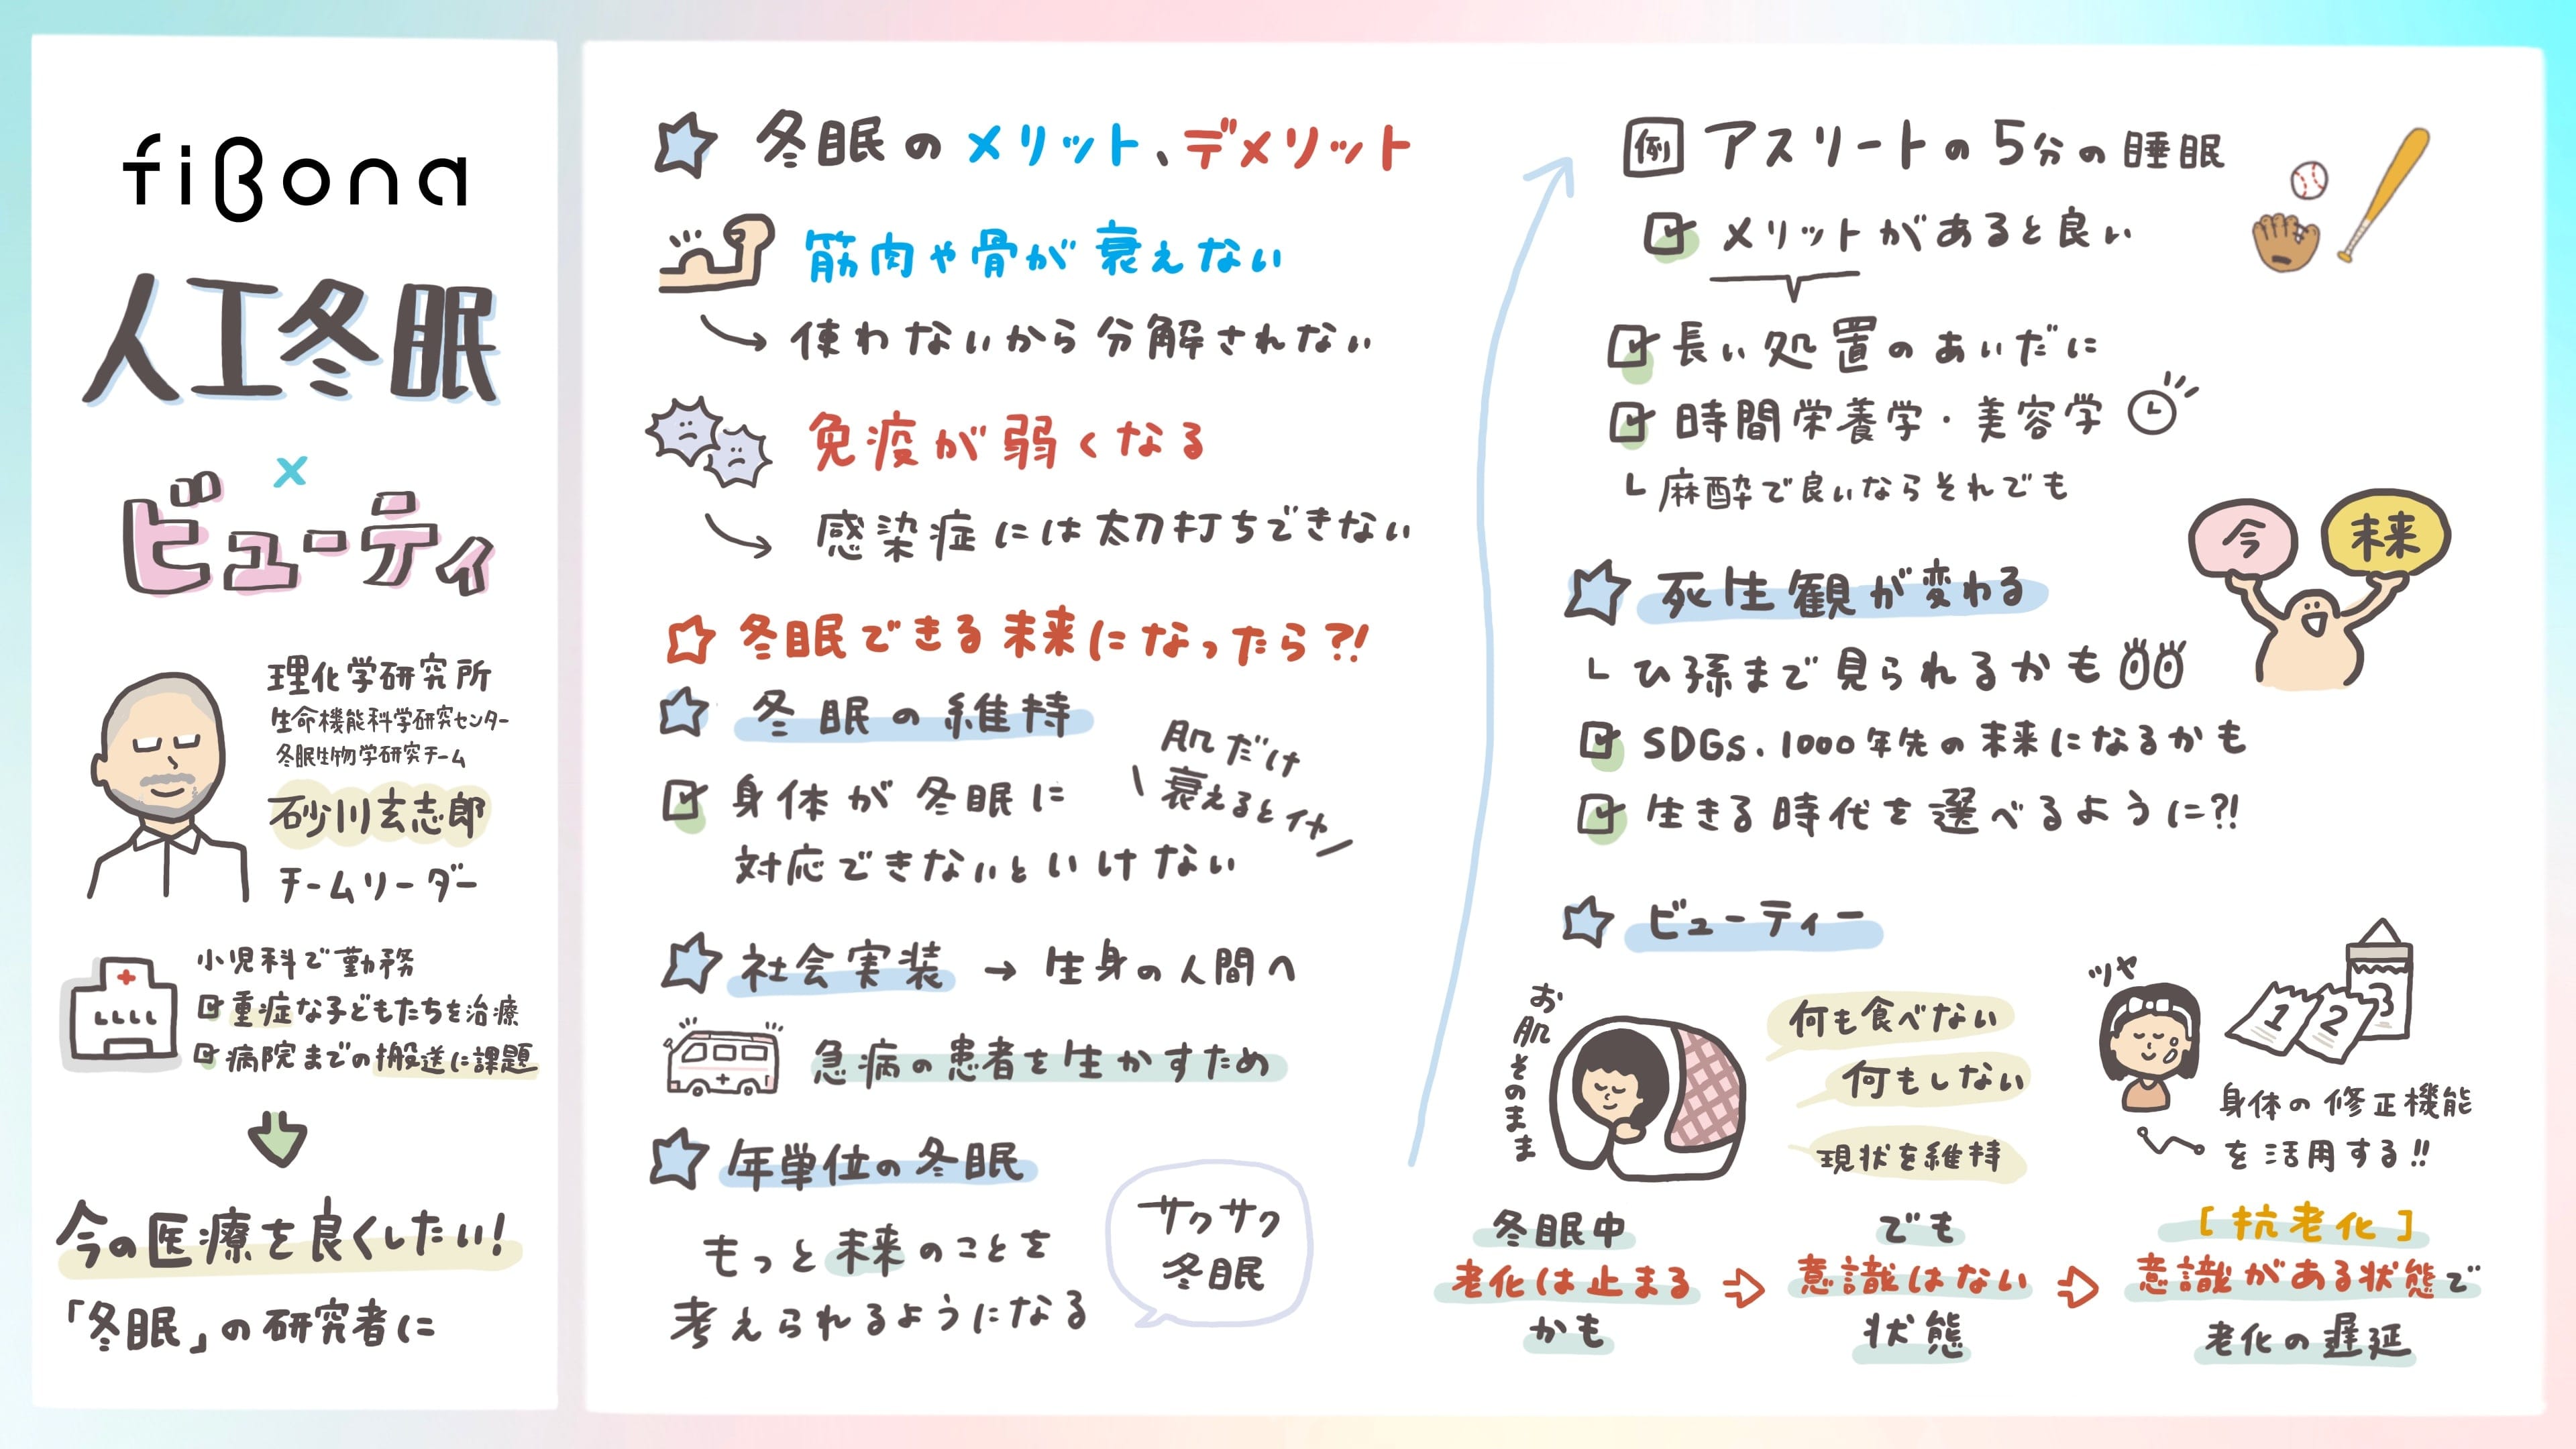 fiBona
人工冬眠
×
ビューティ
理化学研究所
生命機能科学研究センター
冬眠生物学研究チーム
砂川玄志郎
チームリーダー
小児科で勤務
重症な子どもたちを治療
病院までの搬送に課題
今の医療を良くしたい!
「冬眠」の研究者に
冬眠のメリット、デメリット
筋肉や骨が衰えない
使わないから分解されない
免疫が弱くなる
感染症には太刀打ちできない
冬眠できる未来になったら?!
冬眠の維持
身体が冬眠に
対応できないといけない
肌だけ
衰えるとイヤ
社会実装 → 生身の人間へ
急病の患者を生かすため
年単位の冬眠
もっと未来のことを
考えられるようになる
サクサク
冬眠
例 アスリートの5分の睡眠
メリットがあると良い
長い処置のあいだに
時間栄養学・美容学
麻酔で良いならそれでも
死生観が変わる
今
未来
ひ孫まで見られるかも
SDGs、1000年先の未来になるかも
生きる時代を選べるように?!
ビューティー
お肌そのまま
何も食べない
何もしない
現状を維持
ツヤ
1
2
3
身体の修正機能
を活用する!!
冬眠中
老化は止まる
かも
でも
意識はない
状態
[抗老化]
意識がある状態で
老化の遅延